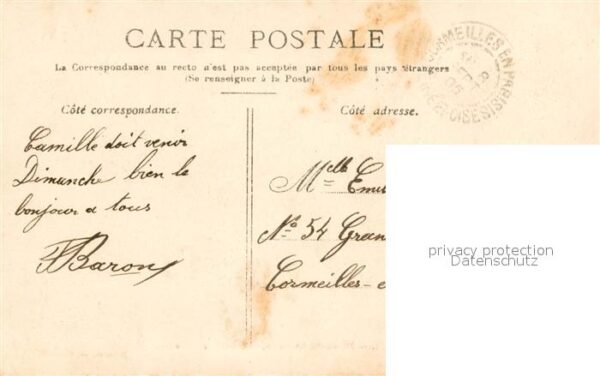 CARTE POSTALE
La Correspondance au recto n'est pas acceptée par tous les pays étrangers
(Se renseigner à la Poste)
Côté correspondance.
Camille doit venir
Dimanche bien le
bonjour a tous
Baron
Côté adresse.
Melle
No 54 Gran
Cormeilles-e
CORMEILLES EN PARISIS
privacy protection
Datenschutz